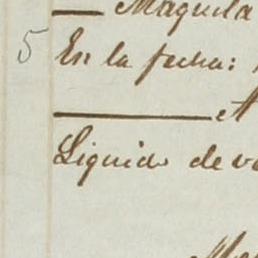 Maquila
5 En la fecha:
A
Liquido de